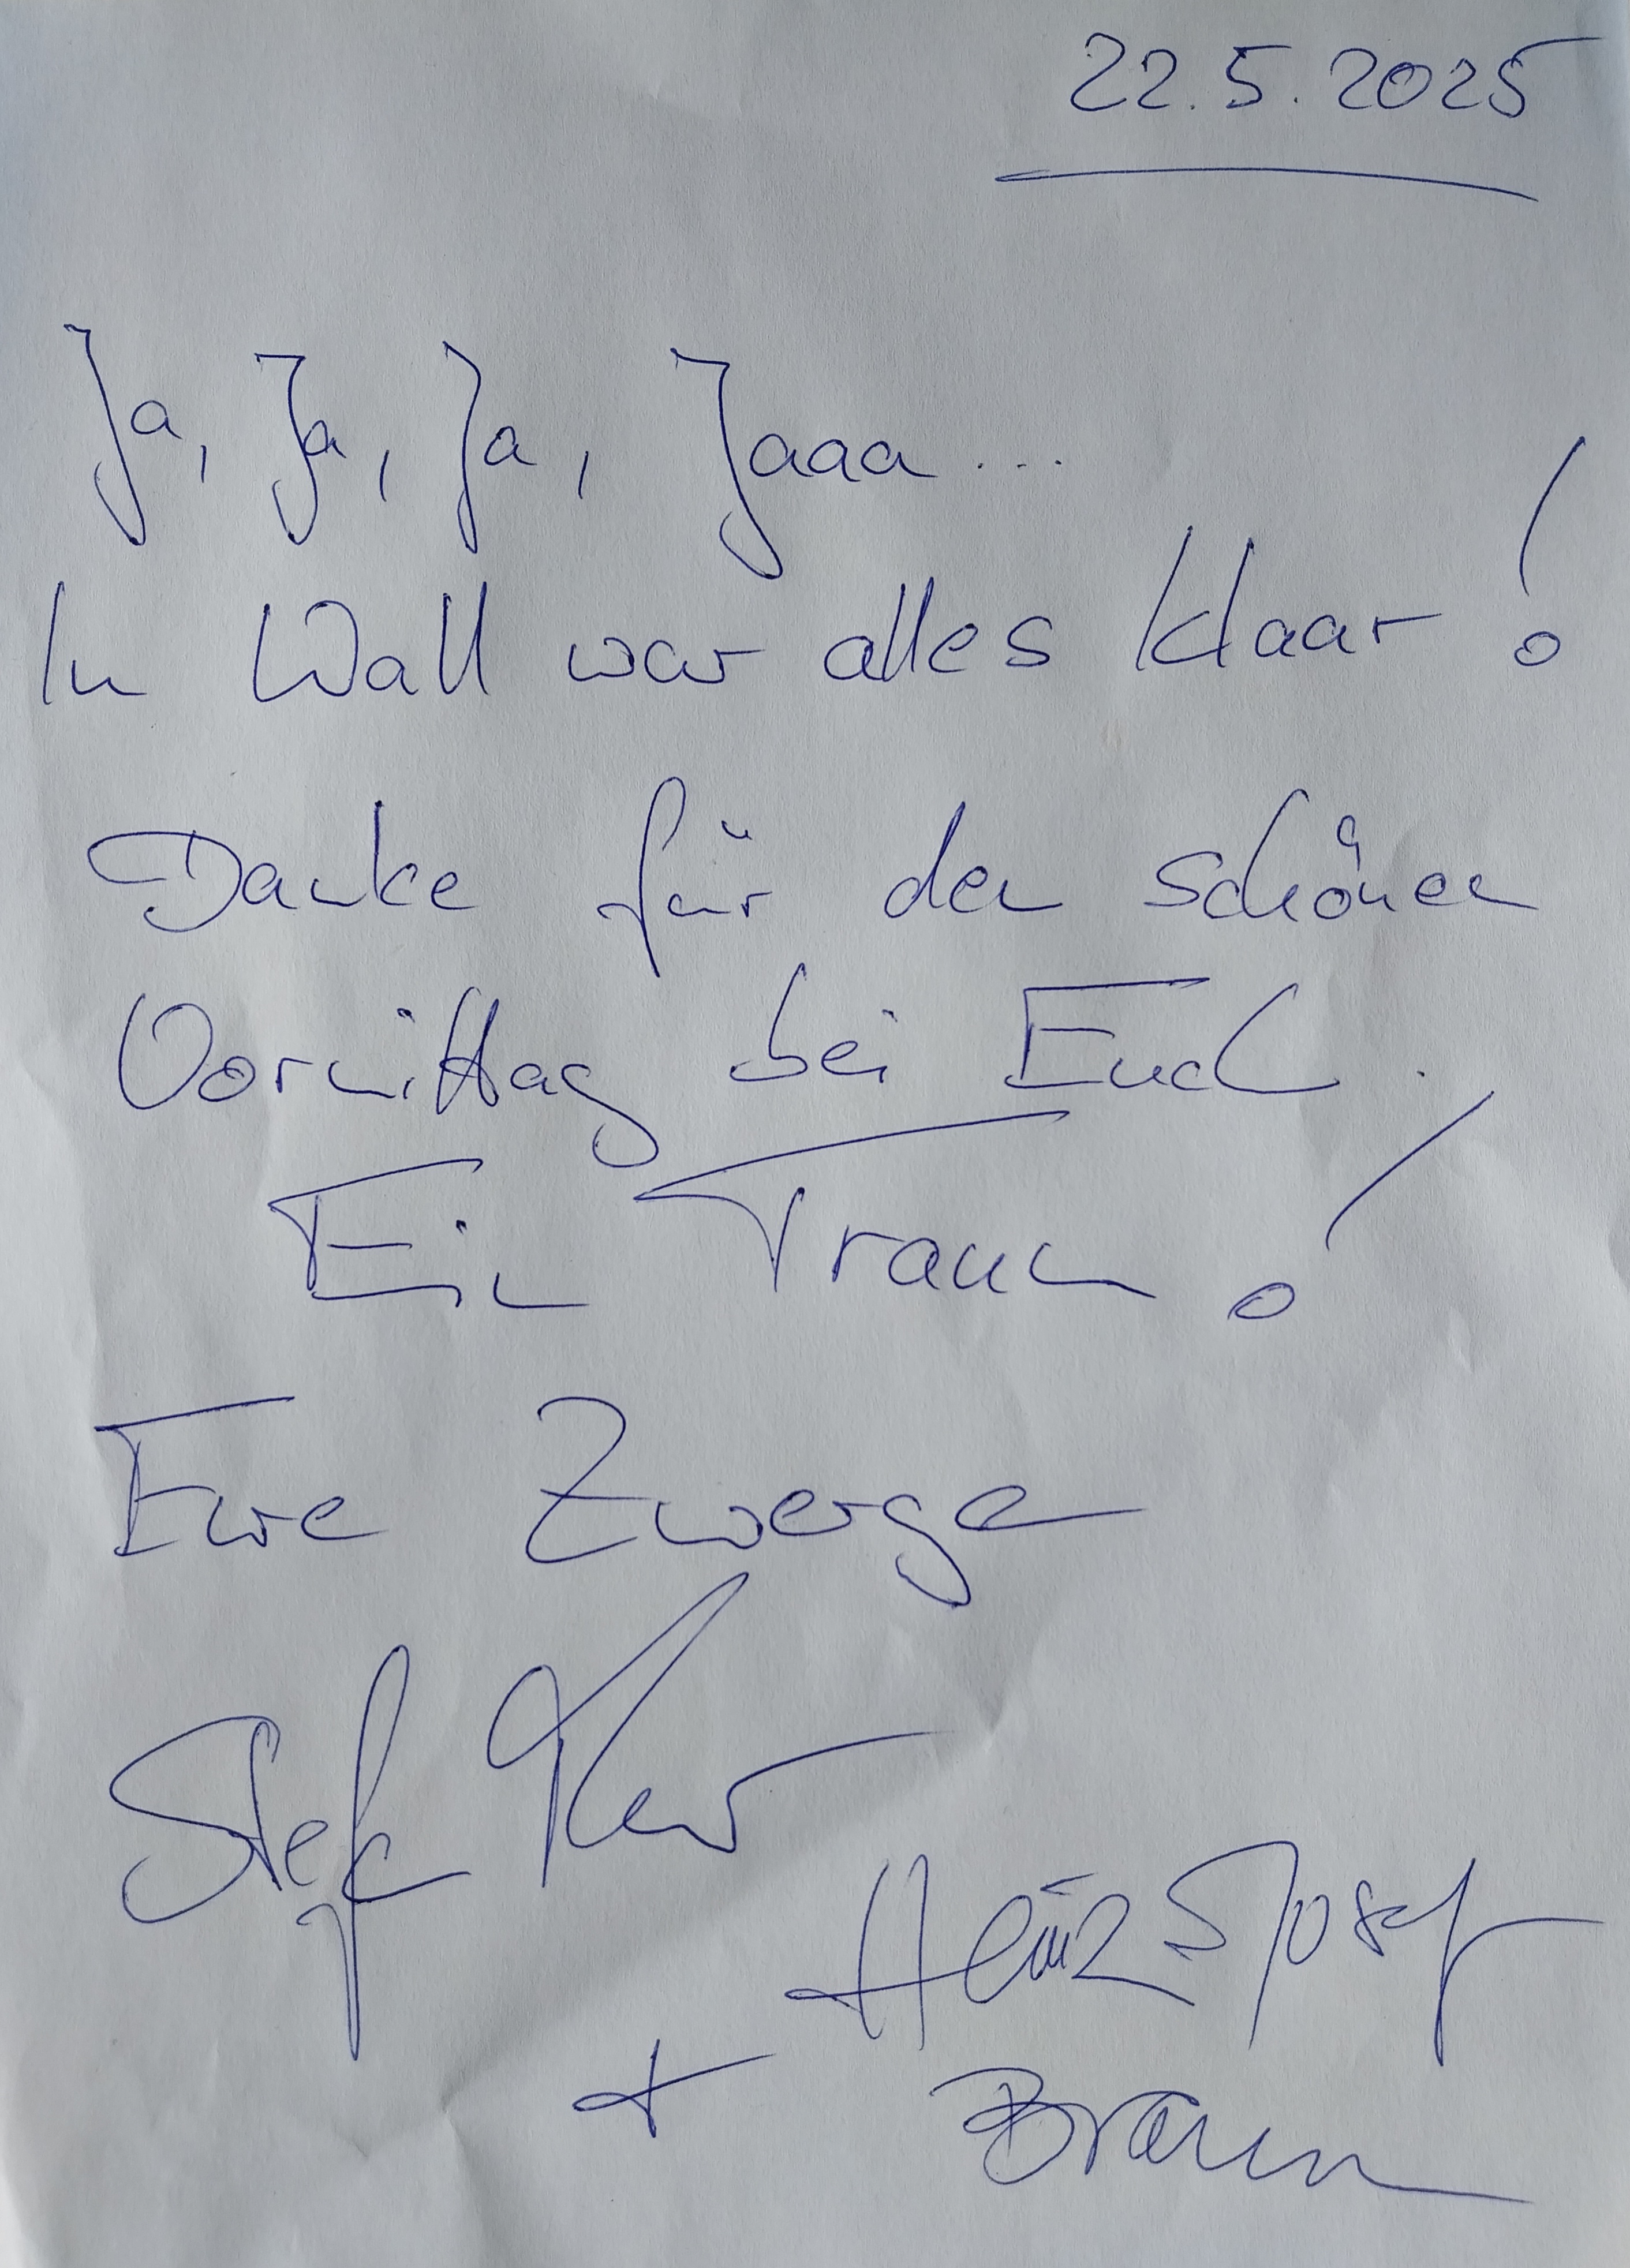 22.5.2025
Ja, Ja, Ja, Jaaa...
In Wall war alles klaar!
Danke für den schönen
Vormittag bei Euch.
Ein Traum!
Eure Zwerge
Stefan
Heinz Josef
+ Braun